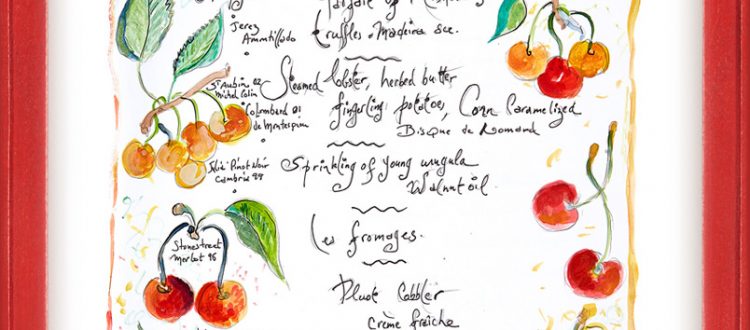 Jerez
Ammtillado
truffles. Madeira sce.
St Aubin 02
Michel Colin
Steamed lobster, herbed butter
Colombard 01
fingerling potatoes, Corn Caramelized
Bisque de Homard
Pinot Noir
Cambria 99
Sprinkling of young arugula
Walnut oil
Les fromages.
Stonestreet
Merlot 96
Pluot Cobbler
Crème fraîche